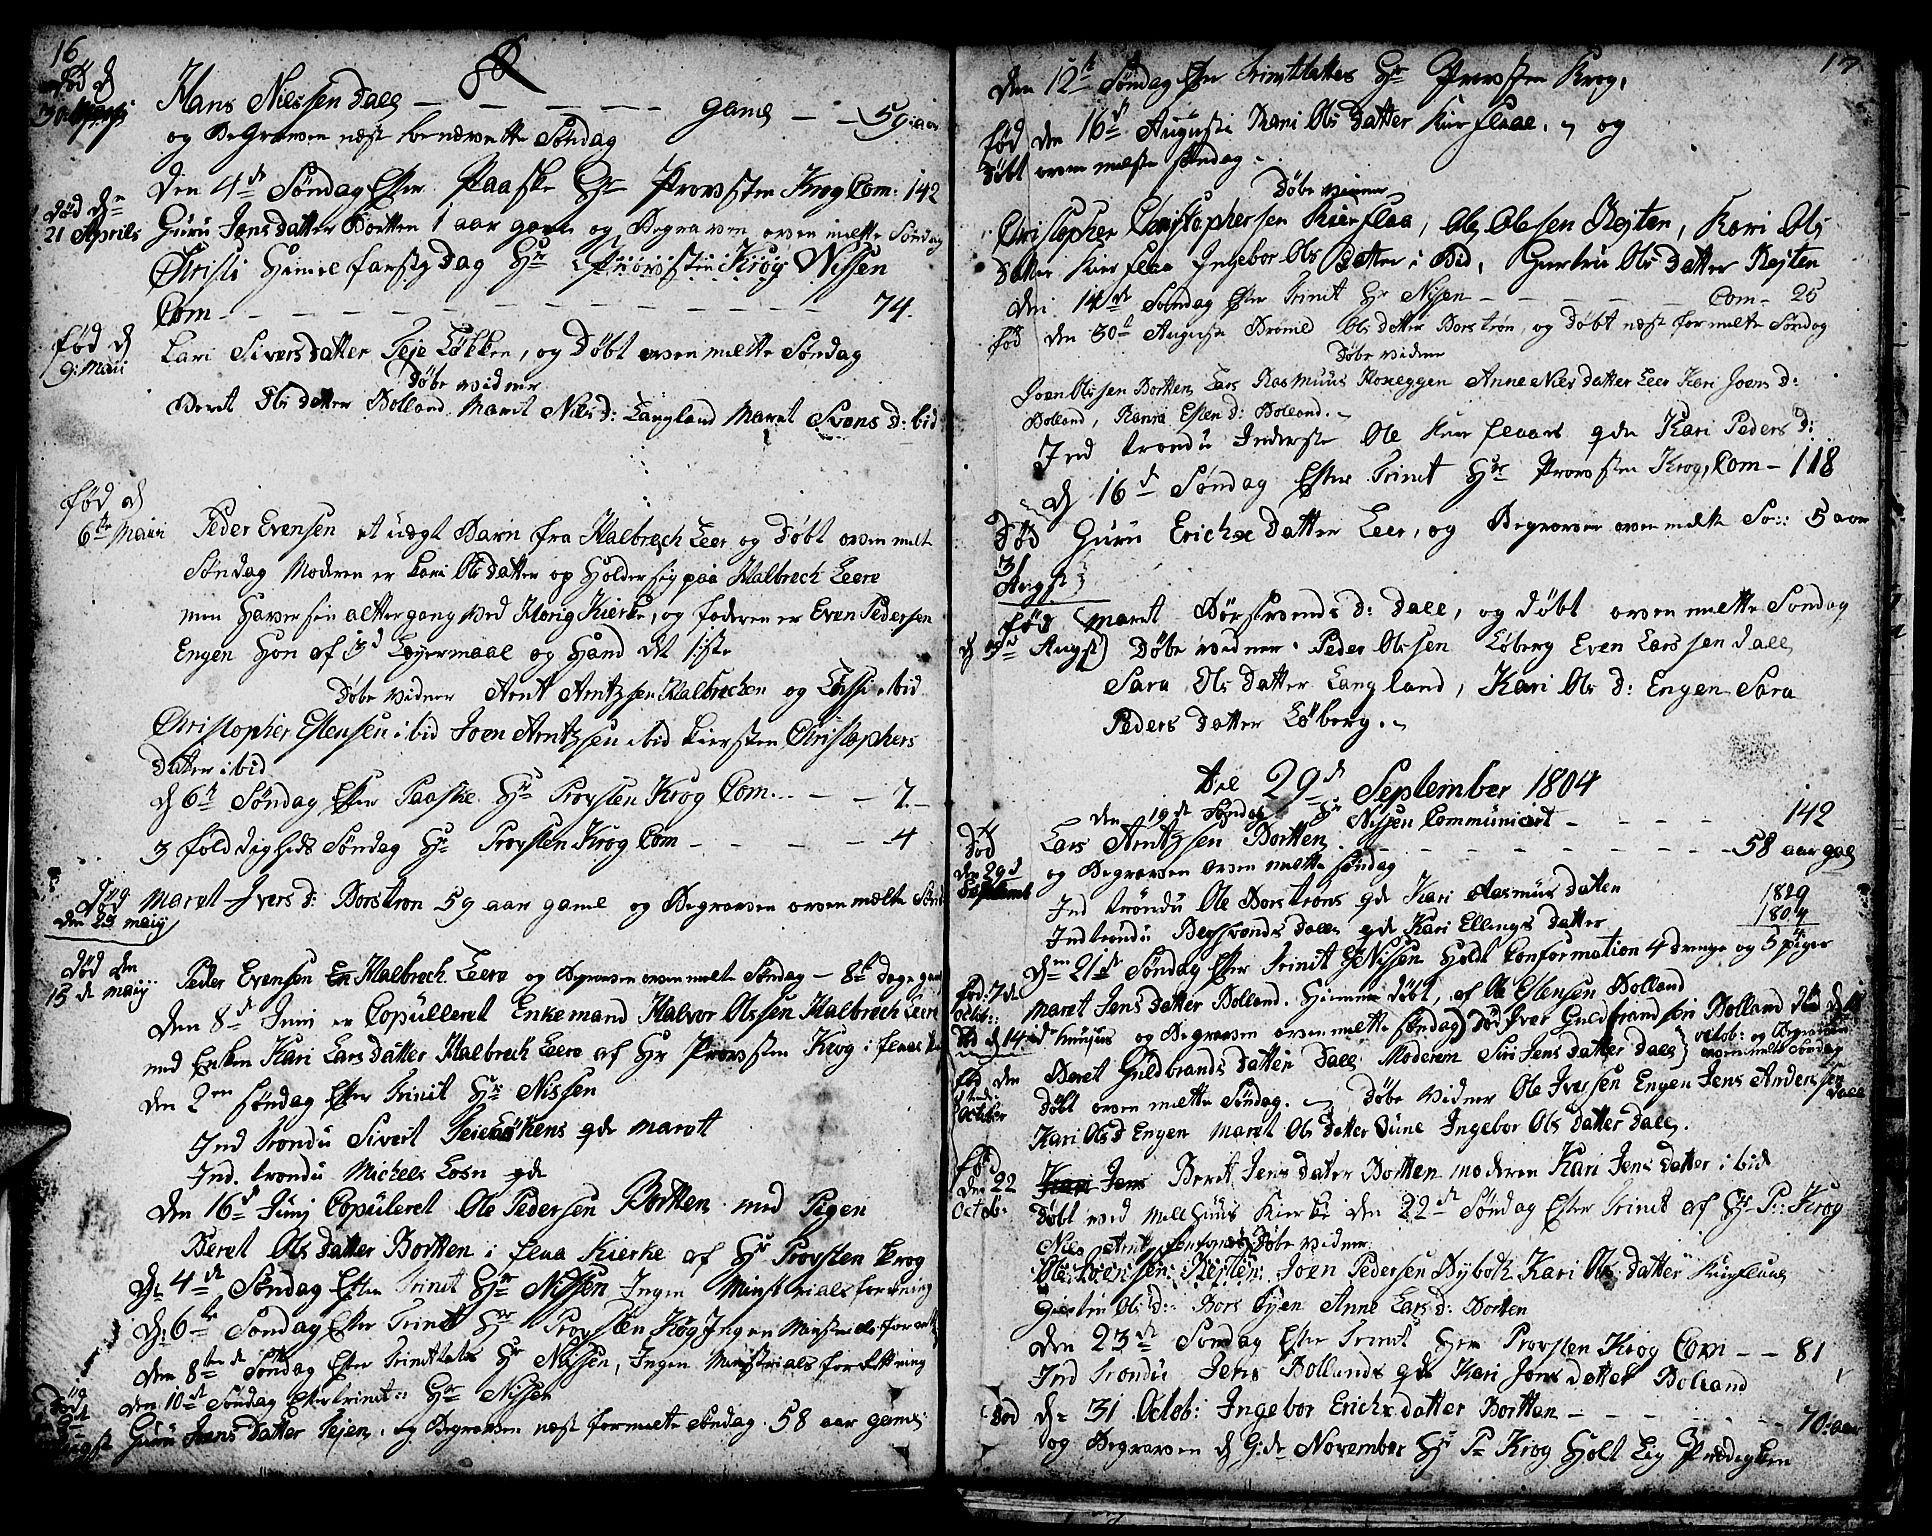 16
død d
30 Marti
Hans Nilssen Dalen - - - - - gaml - - 59: aar
og Begraven næst benævnte Søndag
Den 4de Søndag Efter Paaske Hr Provsten Krog Com: 142
død dn
21 Aprils Guru Jensdatter Bortten 1 aar gaml og Begraven oven melte Søndag
Christi Himmelfarts Dag Hr Nissen
Com - - - - - - - - - 74.
fød d
9: Maii
Kari Siversdatter Teje Løkken, og døbt oven melte Søndag
Døbe vidner
Beret Ols datter Bolland Marit Nils d: Langland Maret Svens d: ibid
fød d
6te Maii Peder Evensen et uægt Barn fra Kalbrech Leer og døbt oven melt
Søndag Moderen er Kari Ols datter op Holder sig paa Kalbrech Leere
men Haver sin altergang ved Horig Kierke, og faderen er Even Pedersen
Engen Hon af Leyermaal og Hand det siste
Døbe vidner Arnt Arntzsen Kalbrechen og ibid
Christopher Estensen ibid Joen Arntzsen ibid Kiersten Christophers
datter ibid
d 6te Søndag Efter Paaske Hr Provsten Krog Com. - - - 7 -
3 foldigheds Søndag Hr Provsten Krog Com - - - - - 4
død
den 25 maij Maret Ivers d: Borstrøn 59 aar gaml og Begraven oven melte Sønd
død den
15 de maij Peder Evensen Kalbrech Leere og Begraven oven melte Søndag - 8te dage gam
Den 8de Juni er Copulleret Enkemand Halvor Olssen Kalbrech Leere
med Enken Kari Lars datter Kalbrech Leere af Hr Provsten Krog i flaae
den 2en Søndag Efter Trinit Hr Nissen
Ind trondu Sivert Teieløkens qde marett
Ind. trondu Michels Losn qde
Den 16de Junj Copuleret Ole Pedersen Bortten med Pigen
Beret Ols datter Bortten i flaa Kierke af Hr Provsten Krog
D: 4de Søndag Efter Trinit Hr Nissen Ingen Minstrials foretning
D: 6te Søndag Efter Trinit Hr Provsten Krog Ingen Minst
den 8te de Søndag Efter Trinittatis Hr Nissen, Ingen Ministrials forrettning
den 10de Søndag Efter trinit: Hr Nissen
død
Augst Guru Jens datter Tejen, og Begraven næst formelte Søndag 58 aar gamel
17
Den 12te Søndag Efter Trinittatis Hr Provsten Krog,
fød den 16de Augusti Kari Ols datter Kierflaae. og
døbt oven melte Søndag -
Døbe vidner
Christopher Christophersen Kierflaa, Ole Olssen Rejten, Kari Ols
datter Kierflaa Ingebor Ols datter i bid, Guru Ols datter Rejten
Den 14de Søndag Efter Trinit Hr Nissen - - - - - Com - 25
fød den 30te Augusti Ols datter Borstrøn, og døbt næst formelte Søndag
Døbe vidner
Joen Olssen Bortten, Lars Rasmuus Hoxeggen Anne Niels datter Leer Kari Joens d:
Bolland, Esten d: Bolland. -
Ind trondu Inderste Ole Kierflaaes qde Kari Peders d:
d 16de Søndag Efter Trinit Hr Provsten Krog, Com - 118
død
31
Augst Guru Erichs datter Leer, og Begraven oven melte So: 5 aar
fød
d Augst Maret d: Dale, og døbt oven melte Søndag
Døbe vidner Peder Olssen Løberg Even Larssen Dale
Sara Ols datter Langland, Kari Ols d: Engen Sara
Peders datter Løberg. -
29de September 1804
den 19de Søndag Hr Nissen Communicert - - - - 142
død
den 29de
Septembr Lars Arntzsen Bortten. - - - - - 58 aar gal
og Begraven oven melte Søndag
Ind trondu Ole Borstrøns qde Kari Rasmus datter
Indtrondu Dale qde Kari Ellings datter
1829
1804
Den 21de Søndag Efter Trinit Hr Nissen Holdt Confirmation 4 drenge og 5 piger
fød: 7de
Octob: Maret Jens datter Bolland. Hiemme døbt, af Ole Estensen Bolland
død d 14 og Begraven oven melte søndag) død Iver Guldbrandsen Bolland
octob: og Begraven
oven melt Søndag
fød den
October Beret Guldbrands datter Dale Moderen Siri Jens datter Dale
Døbt oven melte Søndag. - Døbe vidner Ole Iverssen Engen Jens Andersen Dale
Kari Ols d Engen Maret Ols datter Bune Ingebor Ols datter Dale.
fød
den 22
Octob: Beret Jens dater Bortten moderen Kari Jens datter i bid
Døbt ved Mellhuus Kierke den 22de Søndag Efter Trinit af Hr P: Krog
Døbe vidner
Rejten: Joen Pedersen Dybok Kari Ols datter Kierflaae
Ols d: Anne Lars d: Borten
Den 23de Søndag Efter Trinit Hrn Provsten Krog Com - - 81
Ind trondu Jens Bollands qde Kari Jons datter Bolland
død d: 31 Octob: Ingebor Erichs datter Bortten - - - - - 70: aar
og Begraven d 9: de November Hr Pr Krog Holt Lig Prædigken